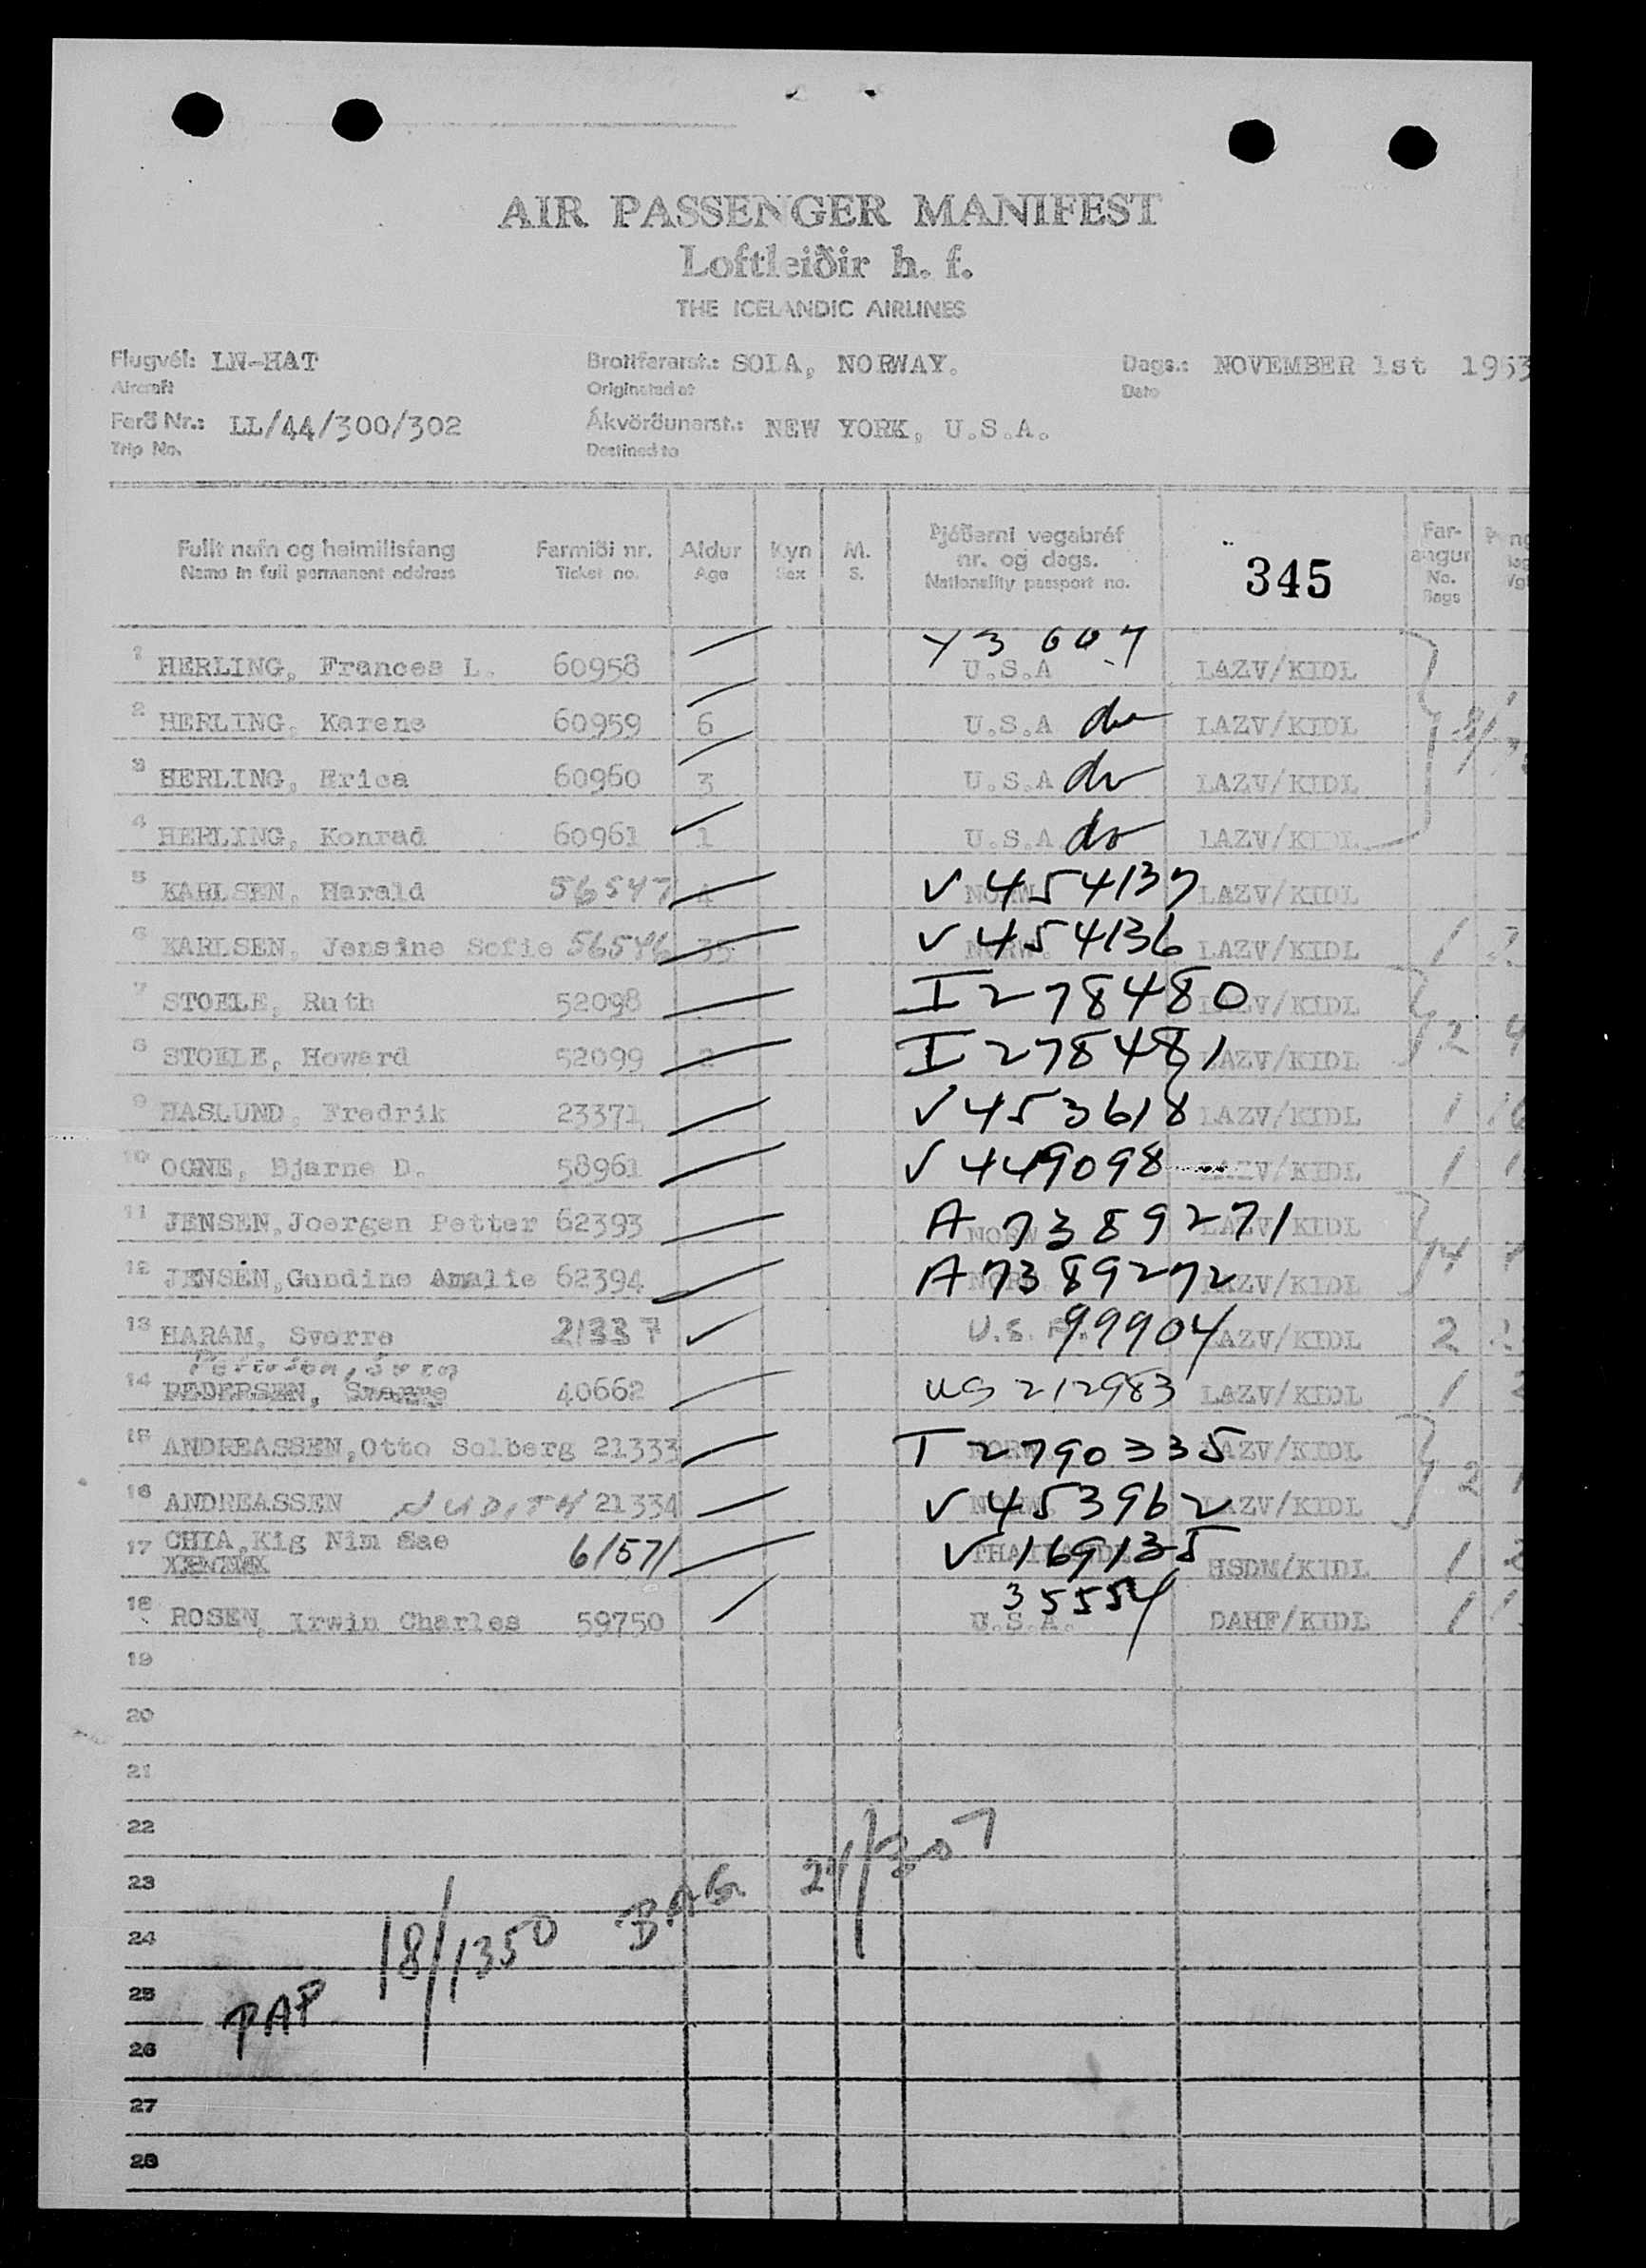 AIR PASSENGER MANIFEST
Loftleiðir h. f.
THE ICELANDIC AIRLINES
Flugvél: LN-HAT Brottfararst.: SOLA, NORWAY. Dags.: NOVEMBER 1st 1953
Aircraft Originated at Date
Ferð Nr.: LL/44/300/302 Ákvörðunarst.: NEW YORK, U.S.A.
Trip No. Destined to
Fullt nafn og heimilisfang Farmiði nr. Aldur Kyn M. Þjóðerni vegabréf Far-
Name in full permanent address Ticket no. Age Sex S. nr. og dags. 345 angur
Nationality passport no. No. Bags
Y3607
1 HERLING, Frances L. 60958 U.S.A LAZV/KIDL
2 HERLING, Karene 60959 6 U.S.A do LAZV/KIDL
3 HERLING, Erica 60960 3 U.S.A do LAZV/KIDL
4 HERLING, Konrad 60961 1 U.S.A do LAZV/KIDL
5 KARLSEN, Harald 56547 4 NORW. V 454137 LAZV/KIDL
6 KARLSEN, Jensine Sofie 56546 35 NORW. V 454136 LAZV/KIDL 1
7 STOELE, Ruth 52098 I 278480 LAZV/KIDL
8 STOELE, Howard 52099 2 I 278481 LAZV/KIDL 2
9 HASLUND, Fredrik 23371 V 453618 LAZV/KIDL 1
10 OGNE, Bjarne D. 58961 V 449098 LAZV/KIDL 1
11 JENSEN, Joergen Petter 62393 NORW A 7389271 LAZV/KIDL
12 JENSEN, Gundine Amalie 62394 NORW A 7389272 LAZV/KIDL 4
13 HARAM, Sverre 21337 U.S. 99904 LAZV/KIDL 2
14 PEDERSEN, 40662 US 212983 LAZV/KIDL 1
15 ANDREASSEN, Otto Solberg 21333 NORW T 2790335 LAZV/KIDL
16 ANDREASSEN JUDITH 21334 NORW V 453962 LAZV/KIDL 2
17 CHIA, Kig Nim Sae 61571 V 169135 HSDM/KIDL 1
35554
18 ROSEN, Irwin Charles 59750 U.S.A. DAHF/KIDL 1
19
20
21
22
23 BAG 24/307
24 18/1350
25 PAP
26
27
28